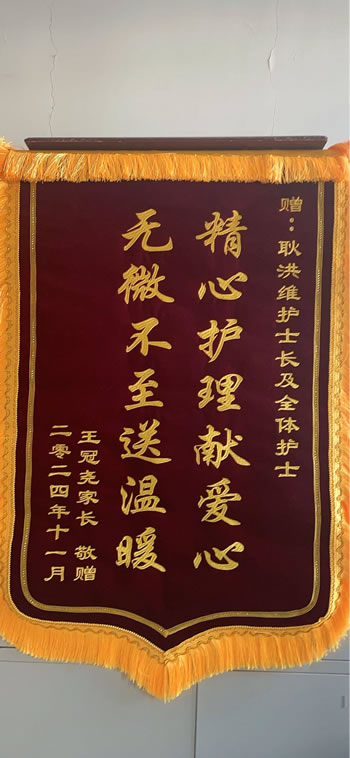 赠：耿洪维护士长及全体护士
精心护理献爱心
无微不至送温暖
王冠尧家长 敬赠
二零二四年十一月